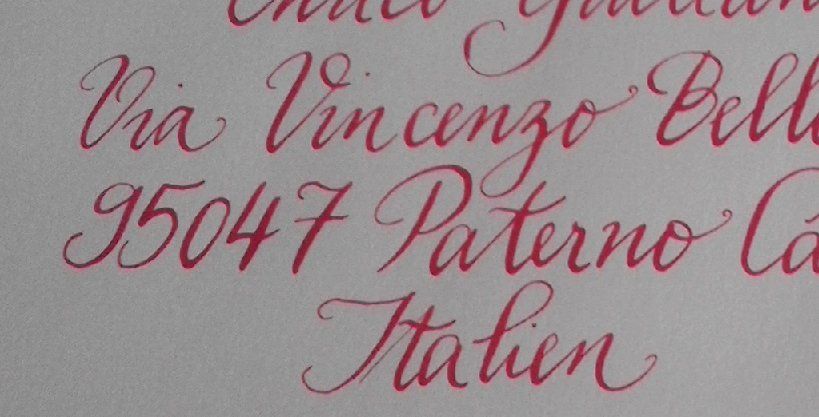 Enrico
Via Vincenzo Bell
95047 Paterno Ca
Italien